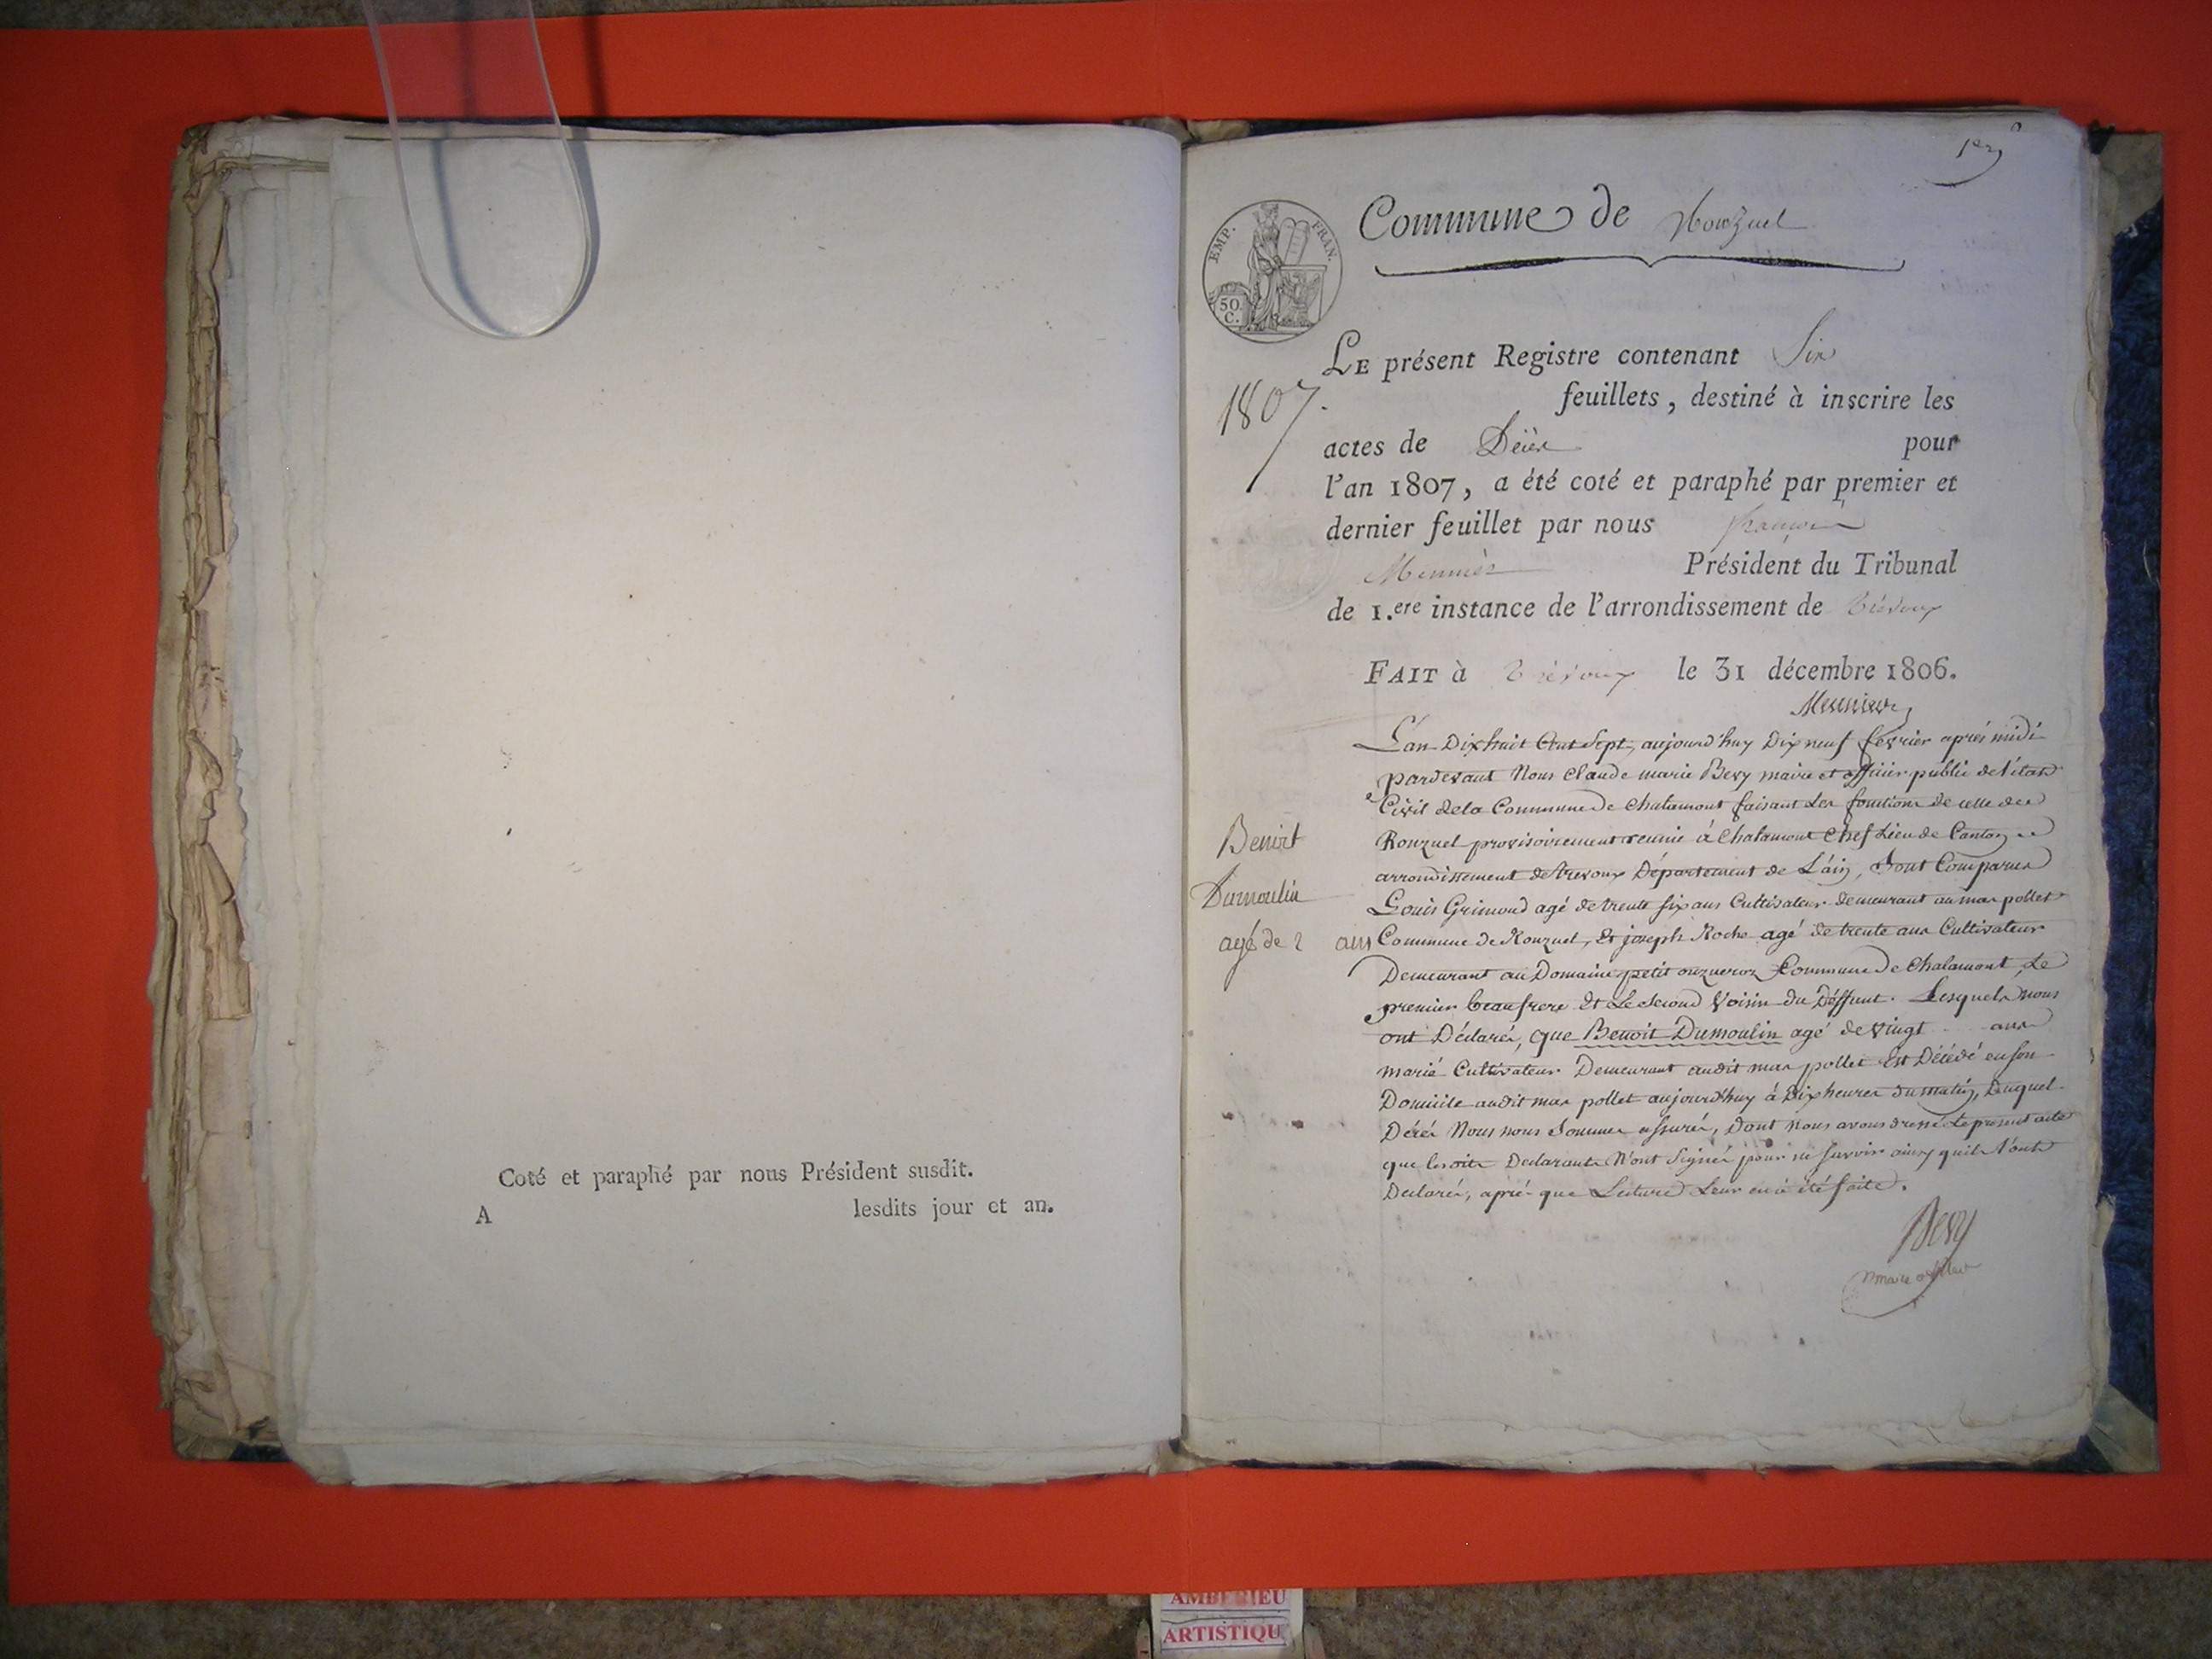 Coté et paraphé par nous Président susdit.
A lesdits jour et an.
1er
Commune de Ronzuel
EMP. FRAN.
50
C.
LE présent Registre contenant Six
feuillets, destiné à inscrire les
1807.
actes de Décès pour
l'an 1807, a été coté et paraphé par premier et
dernier feuillet par nous françois
Meunier Président du Tribunal
de 1.ere instance de l'arrondissement de Trévoux
FAIT à Trévoux le 31 décembre 1806.
Meunier
L'an Dix huit Cent Sept, aujourd'huy Dix neuf fevrier aprés midi
pardevant Nous Claude marie Bevy maire et officier public de l'état
Civil dela Commune de Chalamont faisant les fonctions de celle de
Ronzuel provisoirement reunie à Chalamont Chef Lieu de Canton
arrondissement de trevoux Département de L'ain, Sont Comparus
Louis Grimoud agé de trente six ans Cultivateur demeurant au mas pollet
Commune de Ronzuel, Et joseph Roche agé de trente ans Cultivateur
Demeurant au Domaine petit Commune de Chalamont, Le
premier beaufrere Et Le Second Voisin du Déffunt. Lesquels nous
ont Déclarés, que Benoit Dumoulin agé de vingt ans
marié Cultivateur Demeurant audit mas pollet Est Décédé en son
Domicile audit mas pollet aujourd'huy à Dix heures du matin, Duquel
Décés Nous nous Sommes assurés, Dont nous avons dressé Le présent acte
que lesdits Declarants N'ont Signé pour ne savoir ainsy quils L'ont
Declarés, aprés que Lecture Leur en à été faite.
Benoit
Dumoulin
agé de 2 ans
Bevy
maire
AMBERIEU
ARTISTIQU